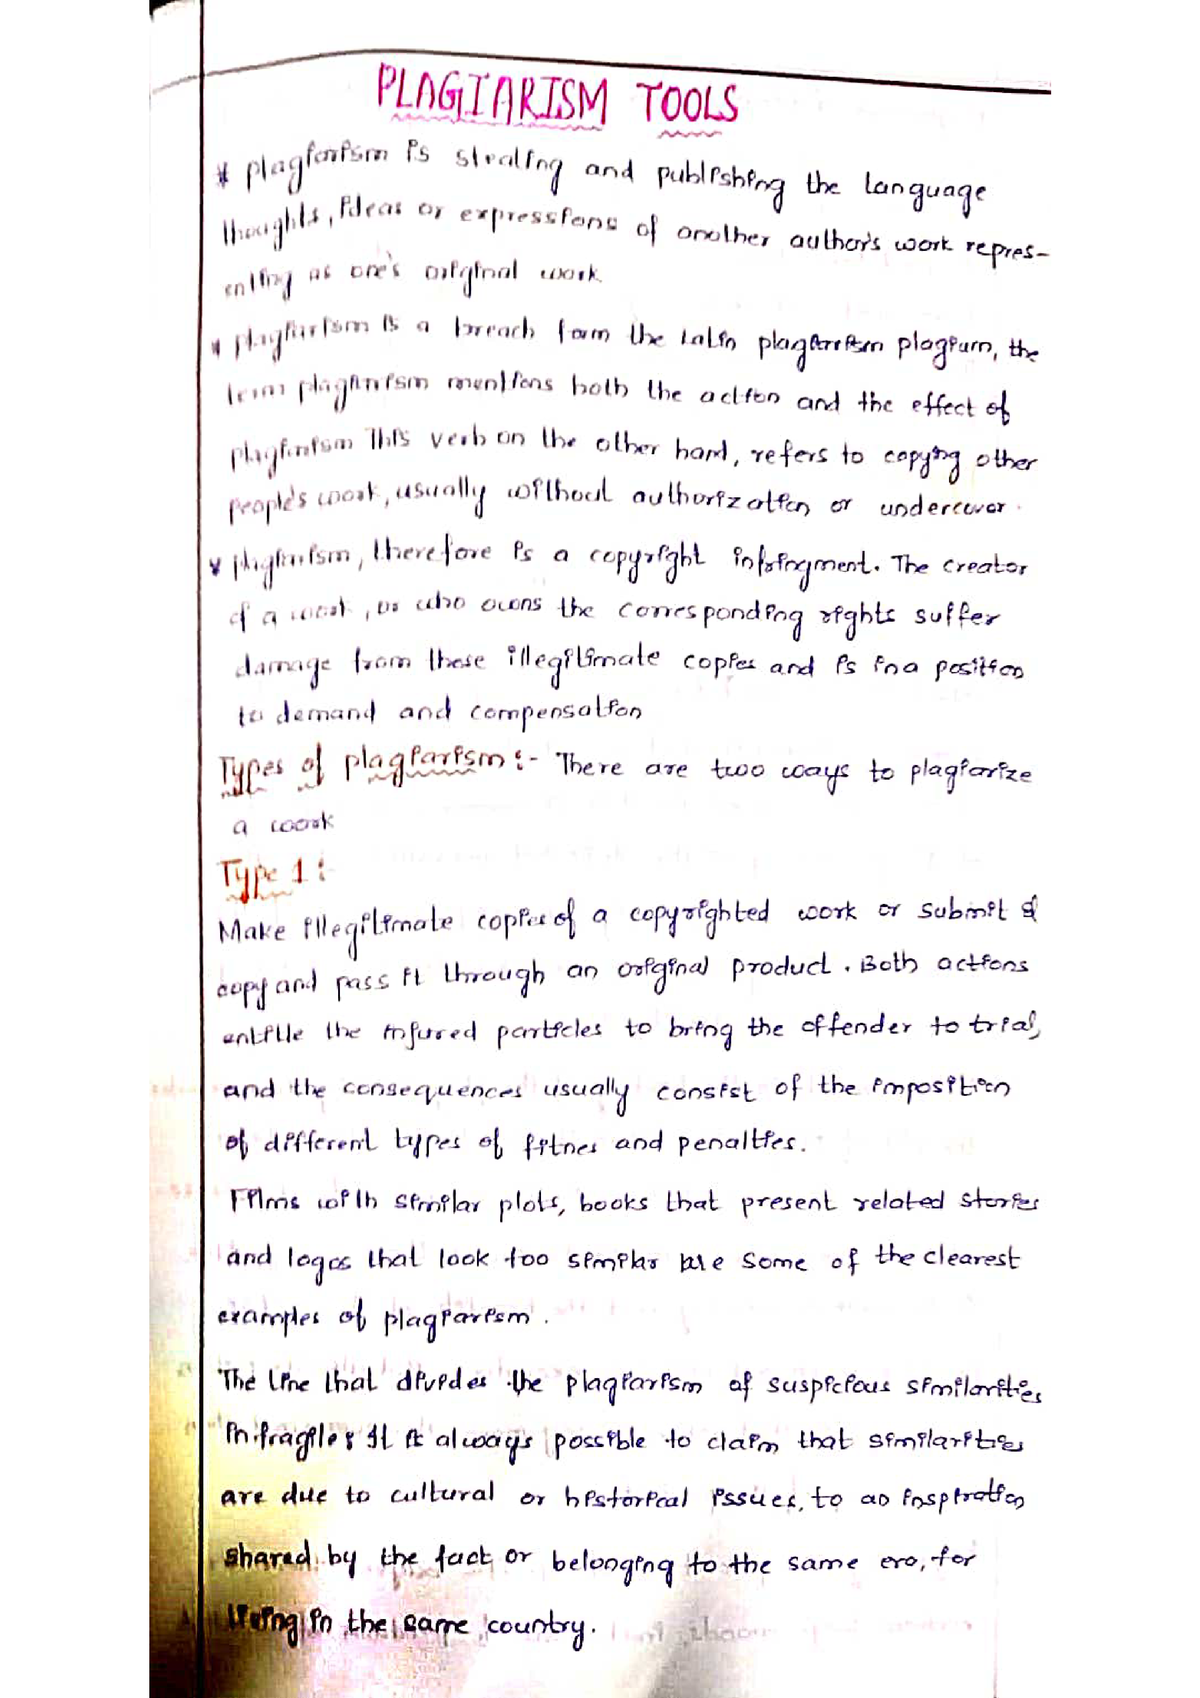 PLAGIARISM TOOLS
* plagiarism is stealing and publishing the language
thoughts, ideas or expressions of another author's work repres-
enting as one's original work
* plagiarism is a breach form the Latin plagiarism plagium, the
term plagiarism mentions both the action and the effect of
plagiarism This verb on the other hand, refers to copying other
people's work, usually without authorization or undercover.
* plagiarism, therefore is a copyright infringment. The creator
of a work, or who owns the corresponding rights suffer
damage from these illegitimate copies and is in a position
to demand and compensation
Types of plagiarism :- There are two ways to plagiarize
a work
Type 1 :-
Make illegitimate copies of a copyrighted work or submit a
copy and pass it through an original product. Both actions
entitle the injured particles to bring the offender to trial,
and the consequences usually consist of the imposition
of different types of fitnes and penalties.
Films with similar plots, books that present related stories
and logos that look too similar are some of the clearest
examples of plagiarism.
The line that divides the plagiarism of suspicious similarities
in fragile; It is always possible to claim that similarities
are due to cultural or historical issues, to an inspiration
shared by the fact or belonging to the same era, for
living in the same country.